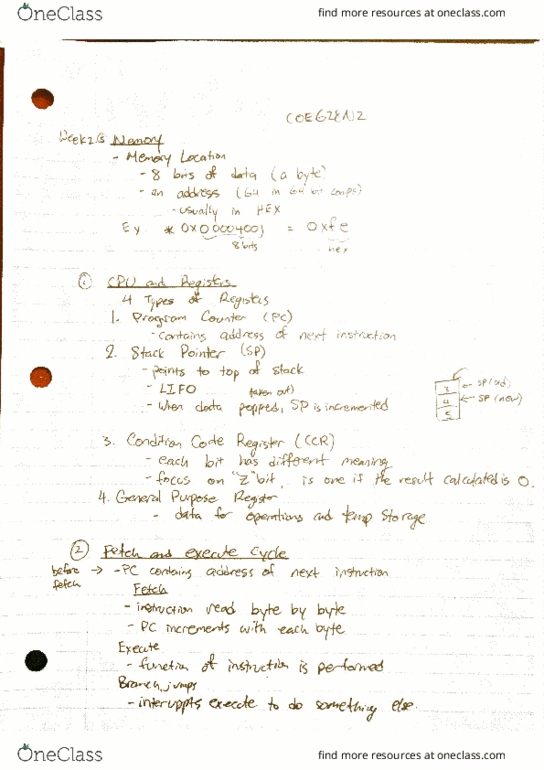 OneClass
find more resources at oneclass.com
COEG2EN2
Week 2.3 Memory
- Memory Location
- 8 bits of data (a byte)
- an address (64 in 64 bit comps)
- usually in HEX
Ex * 0x00004001 = 0xfe
8 bits hex
① CPU and Registers
4 Types of Registers
1. Program Counter (PC)
- contains address of next instruction
2. Stack Pointer (SP)
- points to top of stack
- LIFO (taken out)
- when data popped, SP is incremented
3 ← SP (old)
4 ← SP (new)
5
3. Condition Code Register (CCR)
- each bit has different meaning
- focus on "Z" bit, is one if the result calculated is 0.
4. General Purpose Register
- data for operations and temp storage
② Fetch and execute cycle
before fetch → - PC contains address of next instruction
Fetch
- instruction read byte by byte
- PC increments with each byte
Execute
- function of instruction is performed
Branch, jumps
- interuppts execute to do something else.
OneClass
find more resources at oneclass.com